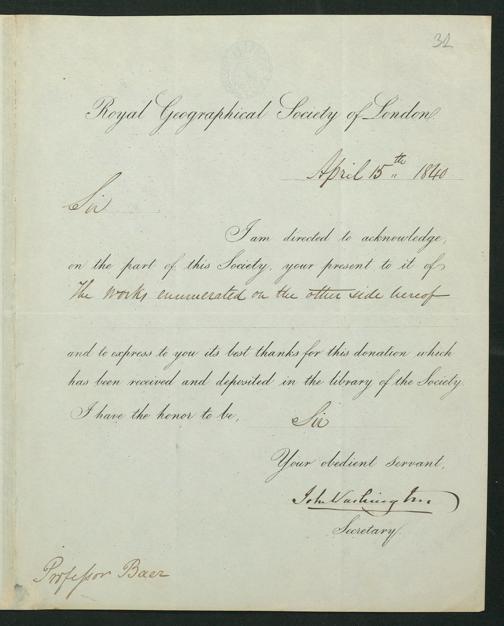 32
Royal Geographical Society of London
April 15th 1840
Sir
I am directed to acknowledge,
on the part of this Society, your present to it of
The works enumerated on the other side hereof
and to express to you its best thanks for this donation which
has been received and deposited in the library of the Society.
I have the honor to be,
Sir
Your obedient servant,
John Washington
Secretary
Professor Baer